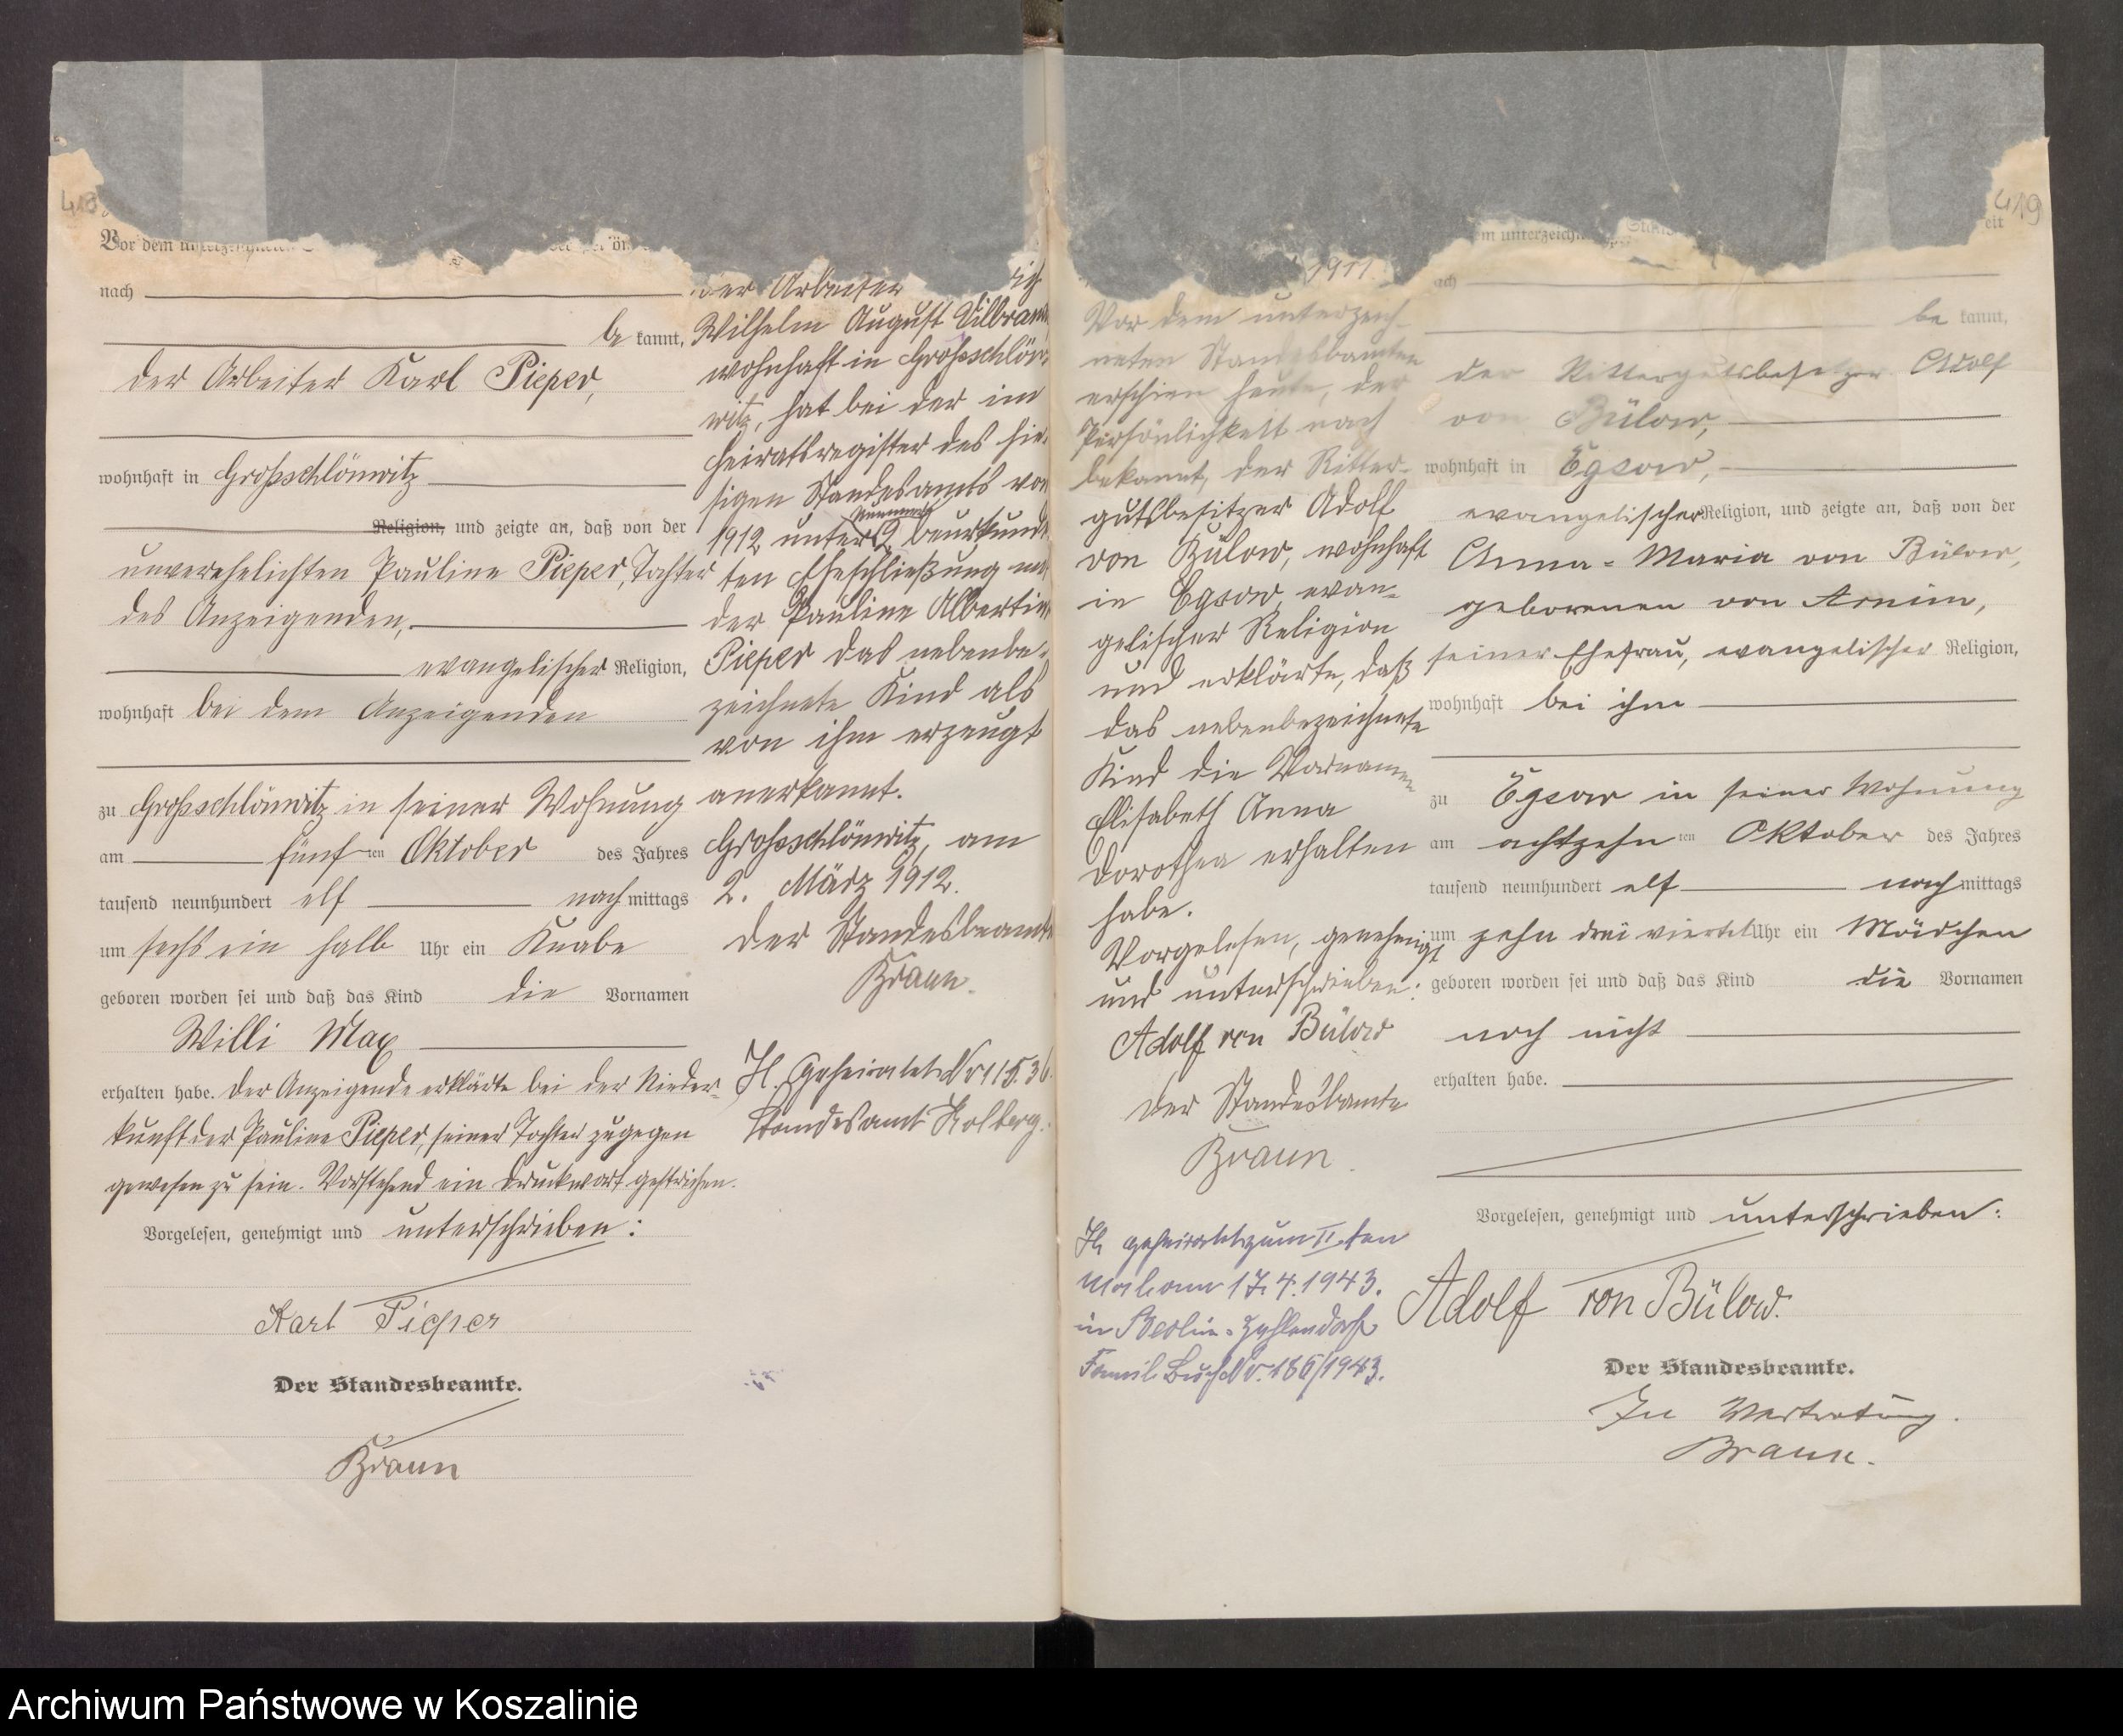 418
Vor dem
nach
be kannt,
der Arbeiter Karl Pieper,
wohnhaft in Großschlönwitz
Religion, und zeigte an, daß von der
unverehelichten Pauline Pieper, Tochter
des Anzeigenden,
evangelischer Religion,
wohnhaft bei dem Anzeigenden
zu Großschlönwitz in seiner Wohnung
am fünften Oktober des Jahres
tausend neunhundert elf nach mittags
um sechs ein halb Uhr ein Knabe
geboren worden sei und daß das Kind die Vornamen
Willi Max
erhalten habe. Der Anzeigende erklärte bei der Nieder-
kunft der Pauline Pieper, seiner Tochter zugegen
gewesen zu sein. Vorstehend ein Druckwort gestrichen.
Vorgelesen, genehmigt und unterschrieben:
Karl Pieper
Der Standesbeamte.
Braun
der Arbeiter
Wilhelm August
wohnhaft in Großschlön-
witz, hat bei der im
Heiratsregister des hie-
sigen Standesamts von
Nummer
1912 unter 2 beurkunde-
ten Eheschließung mit
der Pauline Albertine
Pieper das nebenbe-
zeichnete Kind als
von ihm erzeugt
anerkannt.
Großschlönwitz, am
2. März 1912.
Der Standesbeamte
Braun.
H. Geheiratet Nr 115.36.
Standesamt Kolberg.
1911.
Vor dem unterzeich-
neten Standesbeamten
erschien heute, der
Persönlichkeit nach
bekannt, der Ritter-
gutsbesitzer Adolf
von Bülow, wohnhaft
in Egsow, evan-
gelischer Religion
und erklärte, daß
das nebenbezeichnete
Kind die Vornamen
Elisabeth Anna
Dorothea erhalten
habe.
Vorgelesen, genehmigt
und unterschrieben:
Adolf von Bülow
Der Standesbeamte
Braun.
H. geheiratet zum II. ten
Mal am 17.4.1943.
in Berlin-Zehlendorf
Famil. Buch Nr. 186/1943.
419
em unterzeich
nach
be kannt,
der Rittergutsbesitzer Adolf
von Bülow,
wohnhaft in Egsow,
evangelischer Religion, und zeigte an, daß von der
Anna-Maria von Bülow,
geborenen von Arnim,
seiner Ehefrau, evangelischer Religion,
wohnhaft bei ihm
zu Egsow in seiner Wohnung
am achtzehnten Oktober des Jahres
tausend neunhundert elf nach mittags
um zehn drei viertel Uhr ein Mädchen
geboren worden sei und daß das Kind die Vornamen
noch nicht
erhalten habe.
Vorgelesen, genehmigt und unterschrieben:
Adolf von Bülow.
Der Standesbeamte.
In Vertretung.
Braun.
Archiwum Państwowe w Koszalinie